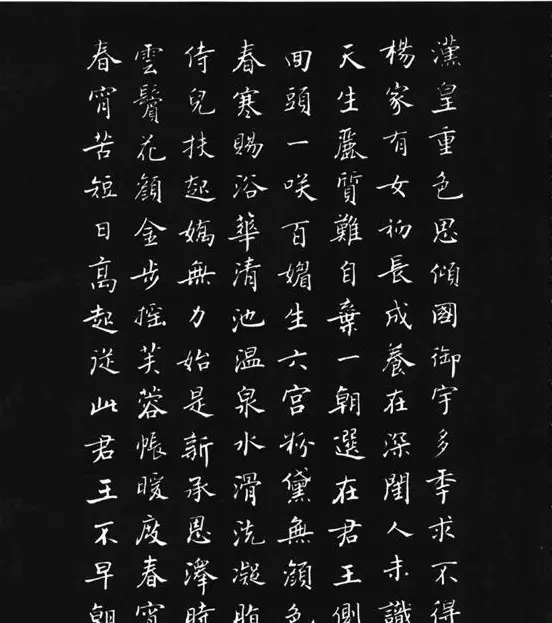 漢皇重色思傾國御宇多年求不得
楊家有女初長成養在深閨人未識
天生麗質難自棄一朝選在君王側
回頭一咲百媚生六宮粉黛無顏色
春寒賜浴華清池温泉水滑洗凝脂
侍兒扶起嬌無力始是新承恩澤時
雲鬢花顏金步搖芙蓉帳暖度春宵
春宵苦短日高起從此君王不早朝